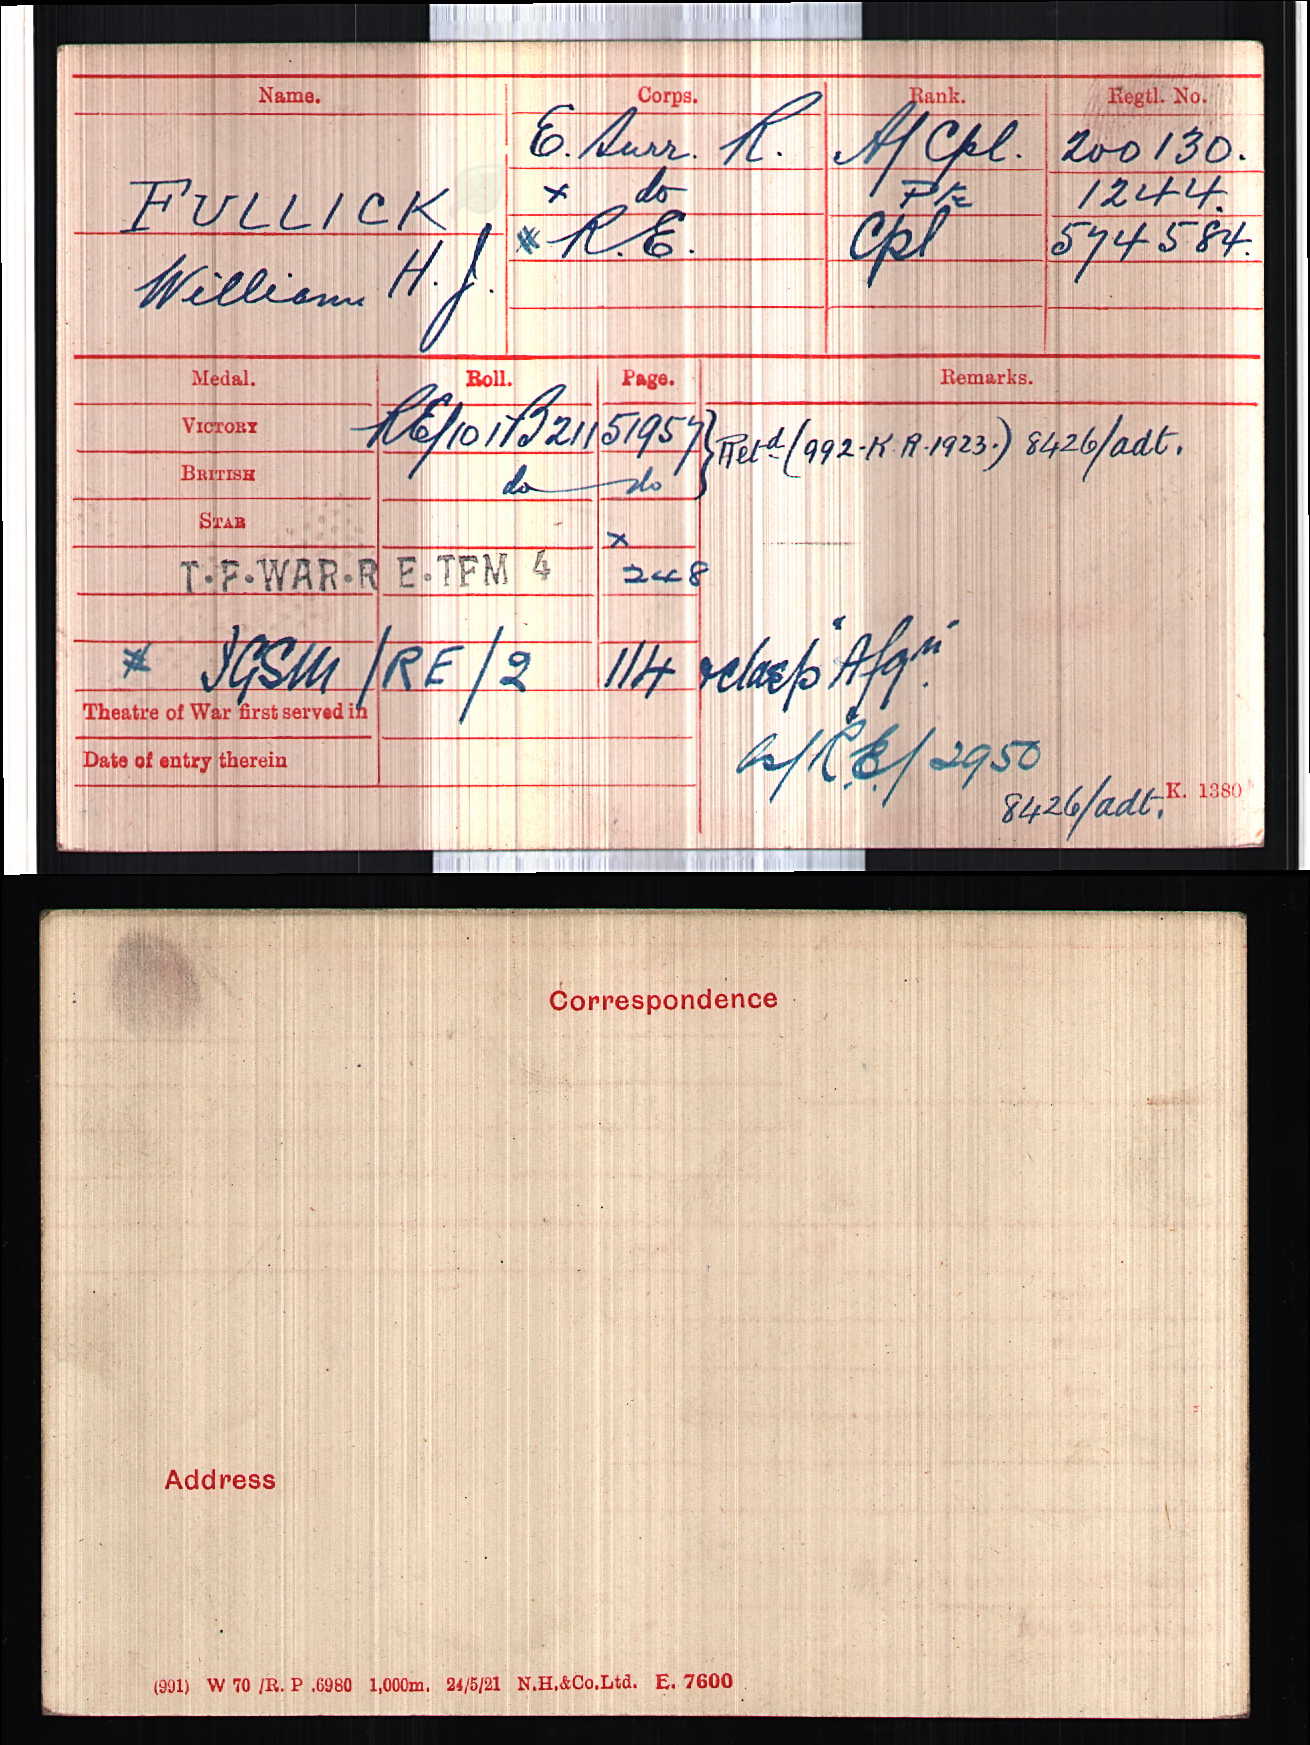 Name. Corps. Rank. Regtl. No.
E. Surr. R. A/Cpl. 200130.
FULLICK × do Pte 1244.
William H. J. * R.E. Cpl 574584.
Medal. Roll. Page. Remarks.
VICTORY RE/101B211 51957 } Retd (992-K.R.1923.) 8426/adt.
BRITISH do do
STAR
×
T·F·WAR·R E·TFM 4 248
* IGSM/RE/2 114 clasp "Afgn"
Theatre of War first served in
Date of entry therein
R.E./2950
8426/adt. K. 1380
Correspondence
Address
(991) W 70 /R. P .6980 1,000m. 24/5/21 N.H.&Co.Ltd. E. 7600